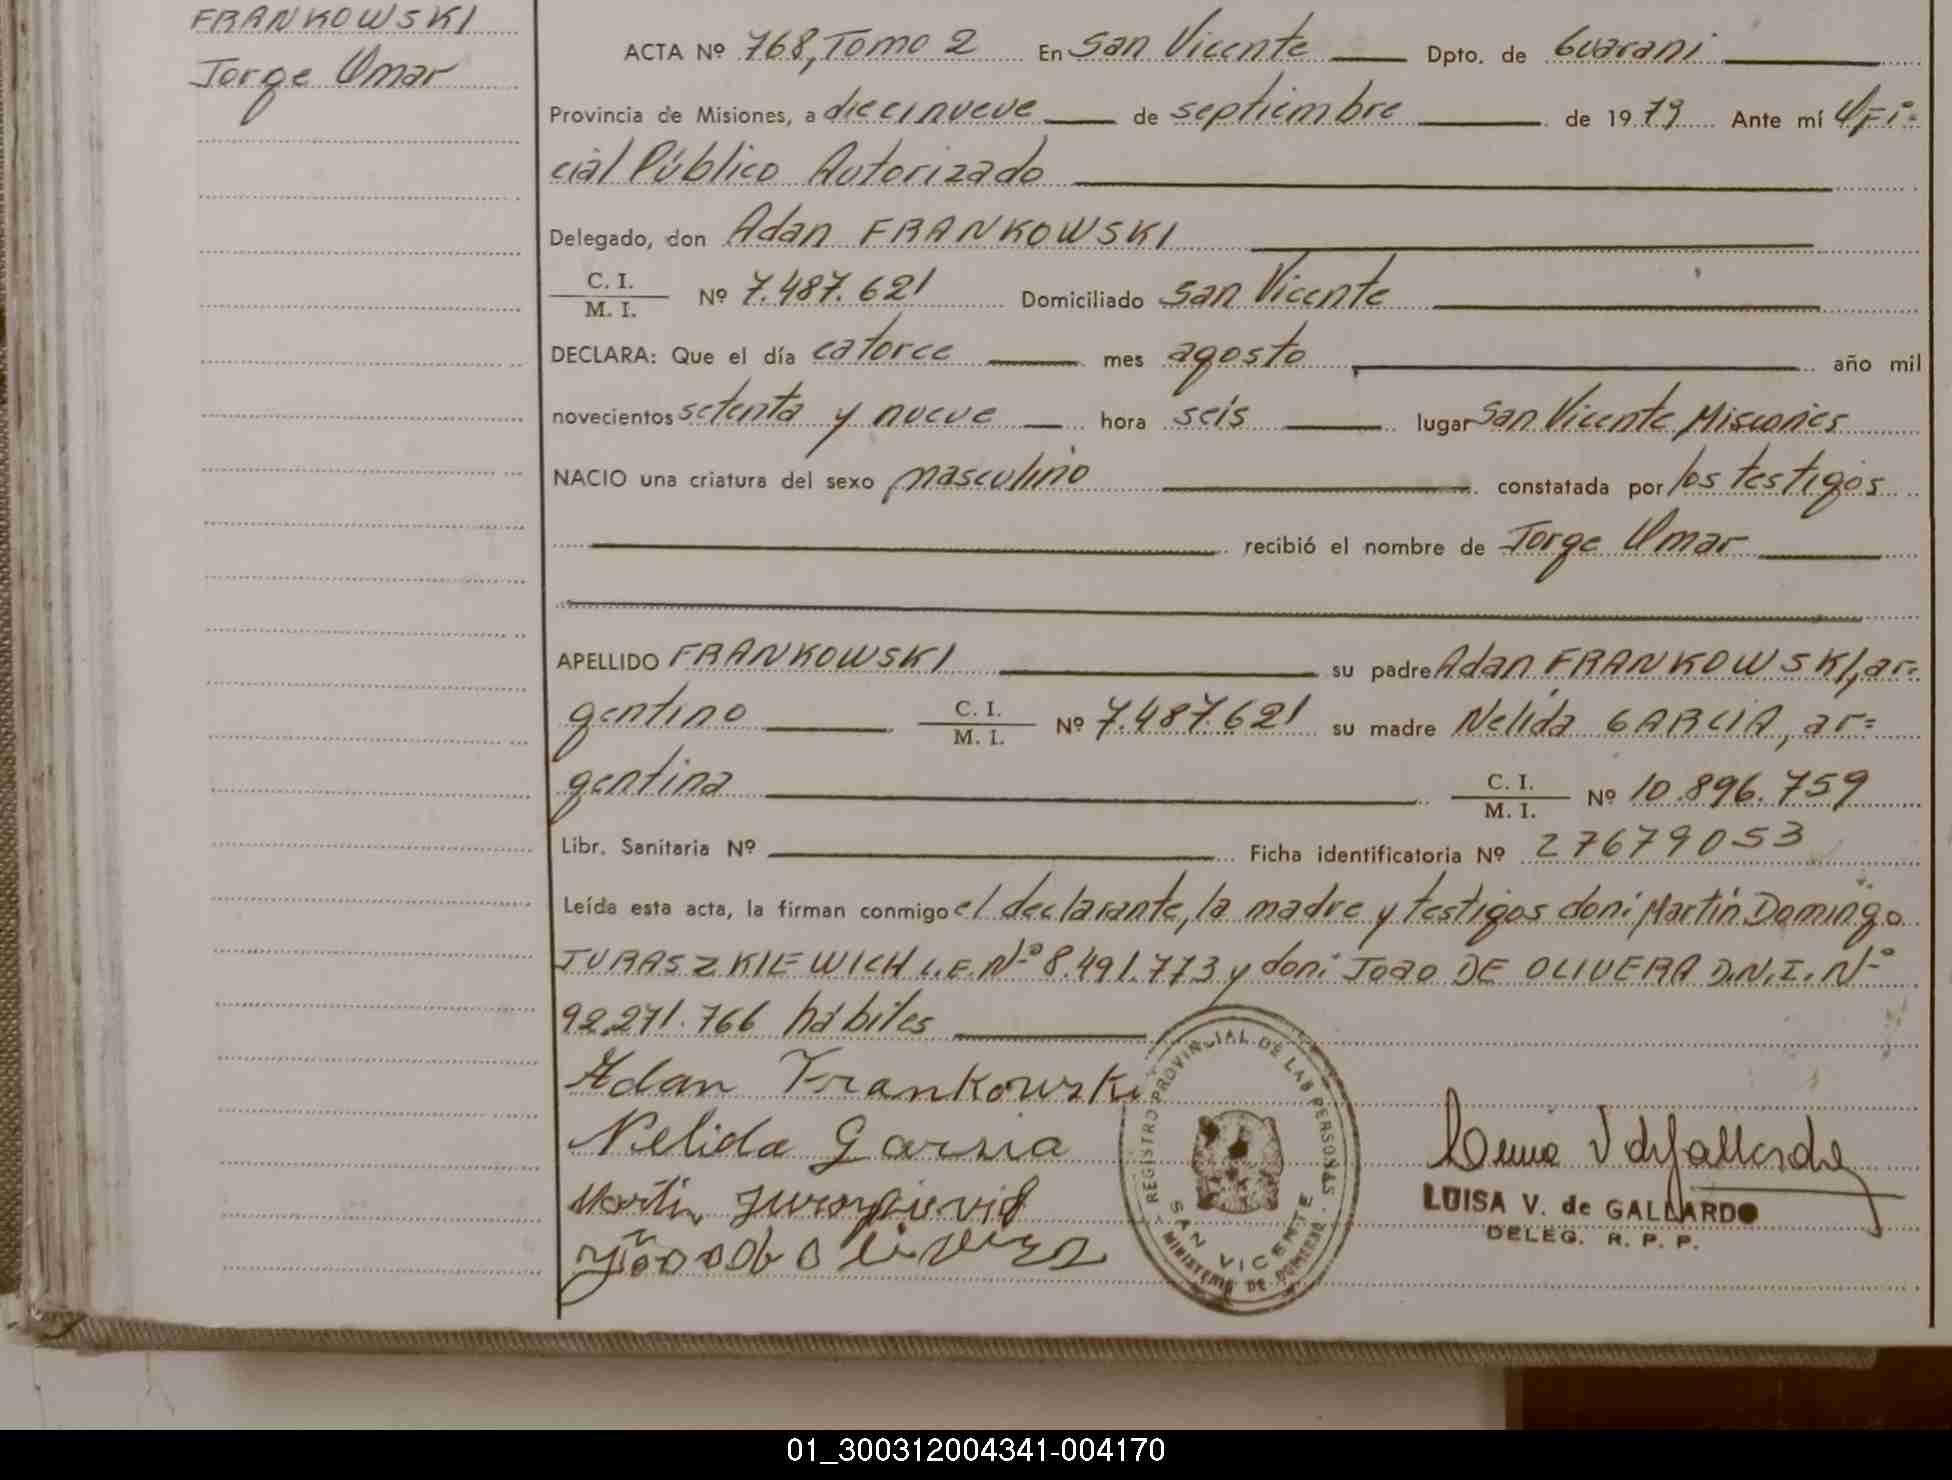 FRANKOWSKI
Jorge Omar
ACTA Nº 768, Tomo 2 En San Vicente Dpto. de Guarani
Provincia de Misiones, a diecinueve de septiembre de 1979 Ante mí Ofi-
cial Público Autorizado
Delegado, don Adan FRANKOWSKI
C. I.
M. I. Nº 7.487.621 Domiciliado San Vicente
DECLARA: Que el día catorce mes agosto año mil
novecientos setenta y nueve hora seis lugar San Vicente Misiones
NACIO una criatura del sexo masculino constatada por los testigos
recibió el nombre de Jorge Omar
APELLIDO FRANKOWSKI su padre Adan FRANKOWSKI, ar=
gentino C. I. M. I. Nº 7.487.621 su madre Nelida GARCIA, ar=
gentina C. I. M. I. Nº 10.896.759
Libr. Sanitaria Nº Ficha identificatoria Nº 27679053
Leída esta acta, la firman conmigo el declarante, la madre y testigos don: Martín Domingo
JURASZKIEWICH L.E. Nº 8.491.773 y don: Joao DE OLIVERA D.N.I. Nº
92.271.766 hábiles
Adan Frankowski
Nelida Garsia
Martin
REGISTRO PROVINCIAL DE LAS PERSONAS
SAN VICENTE
MINISTERIO DE GOBIERNO
LUISA V. de GALLARDO
DELEG. R. P. P.
01_300312004341-004170